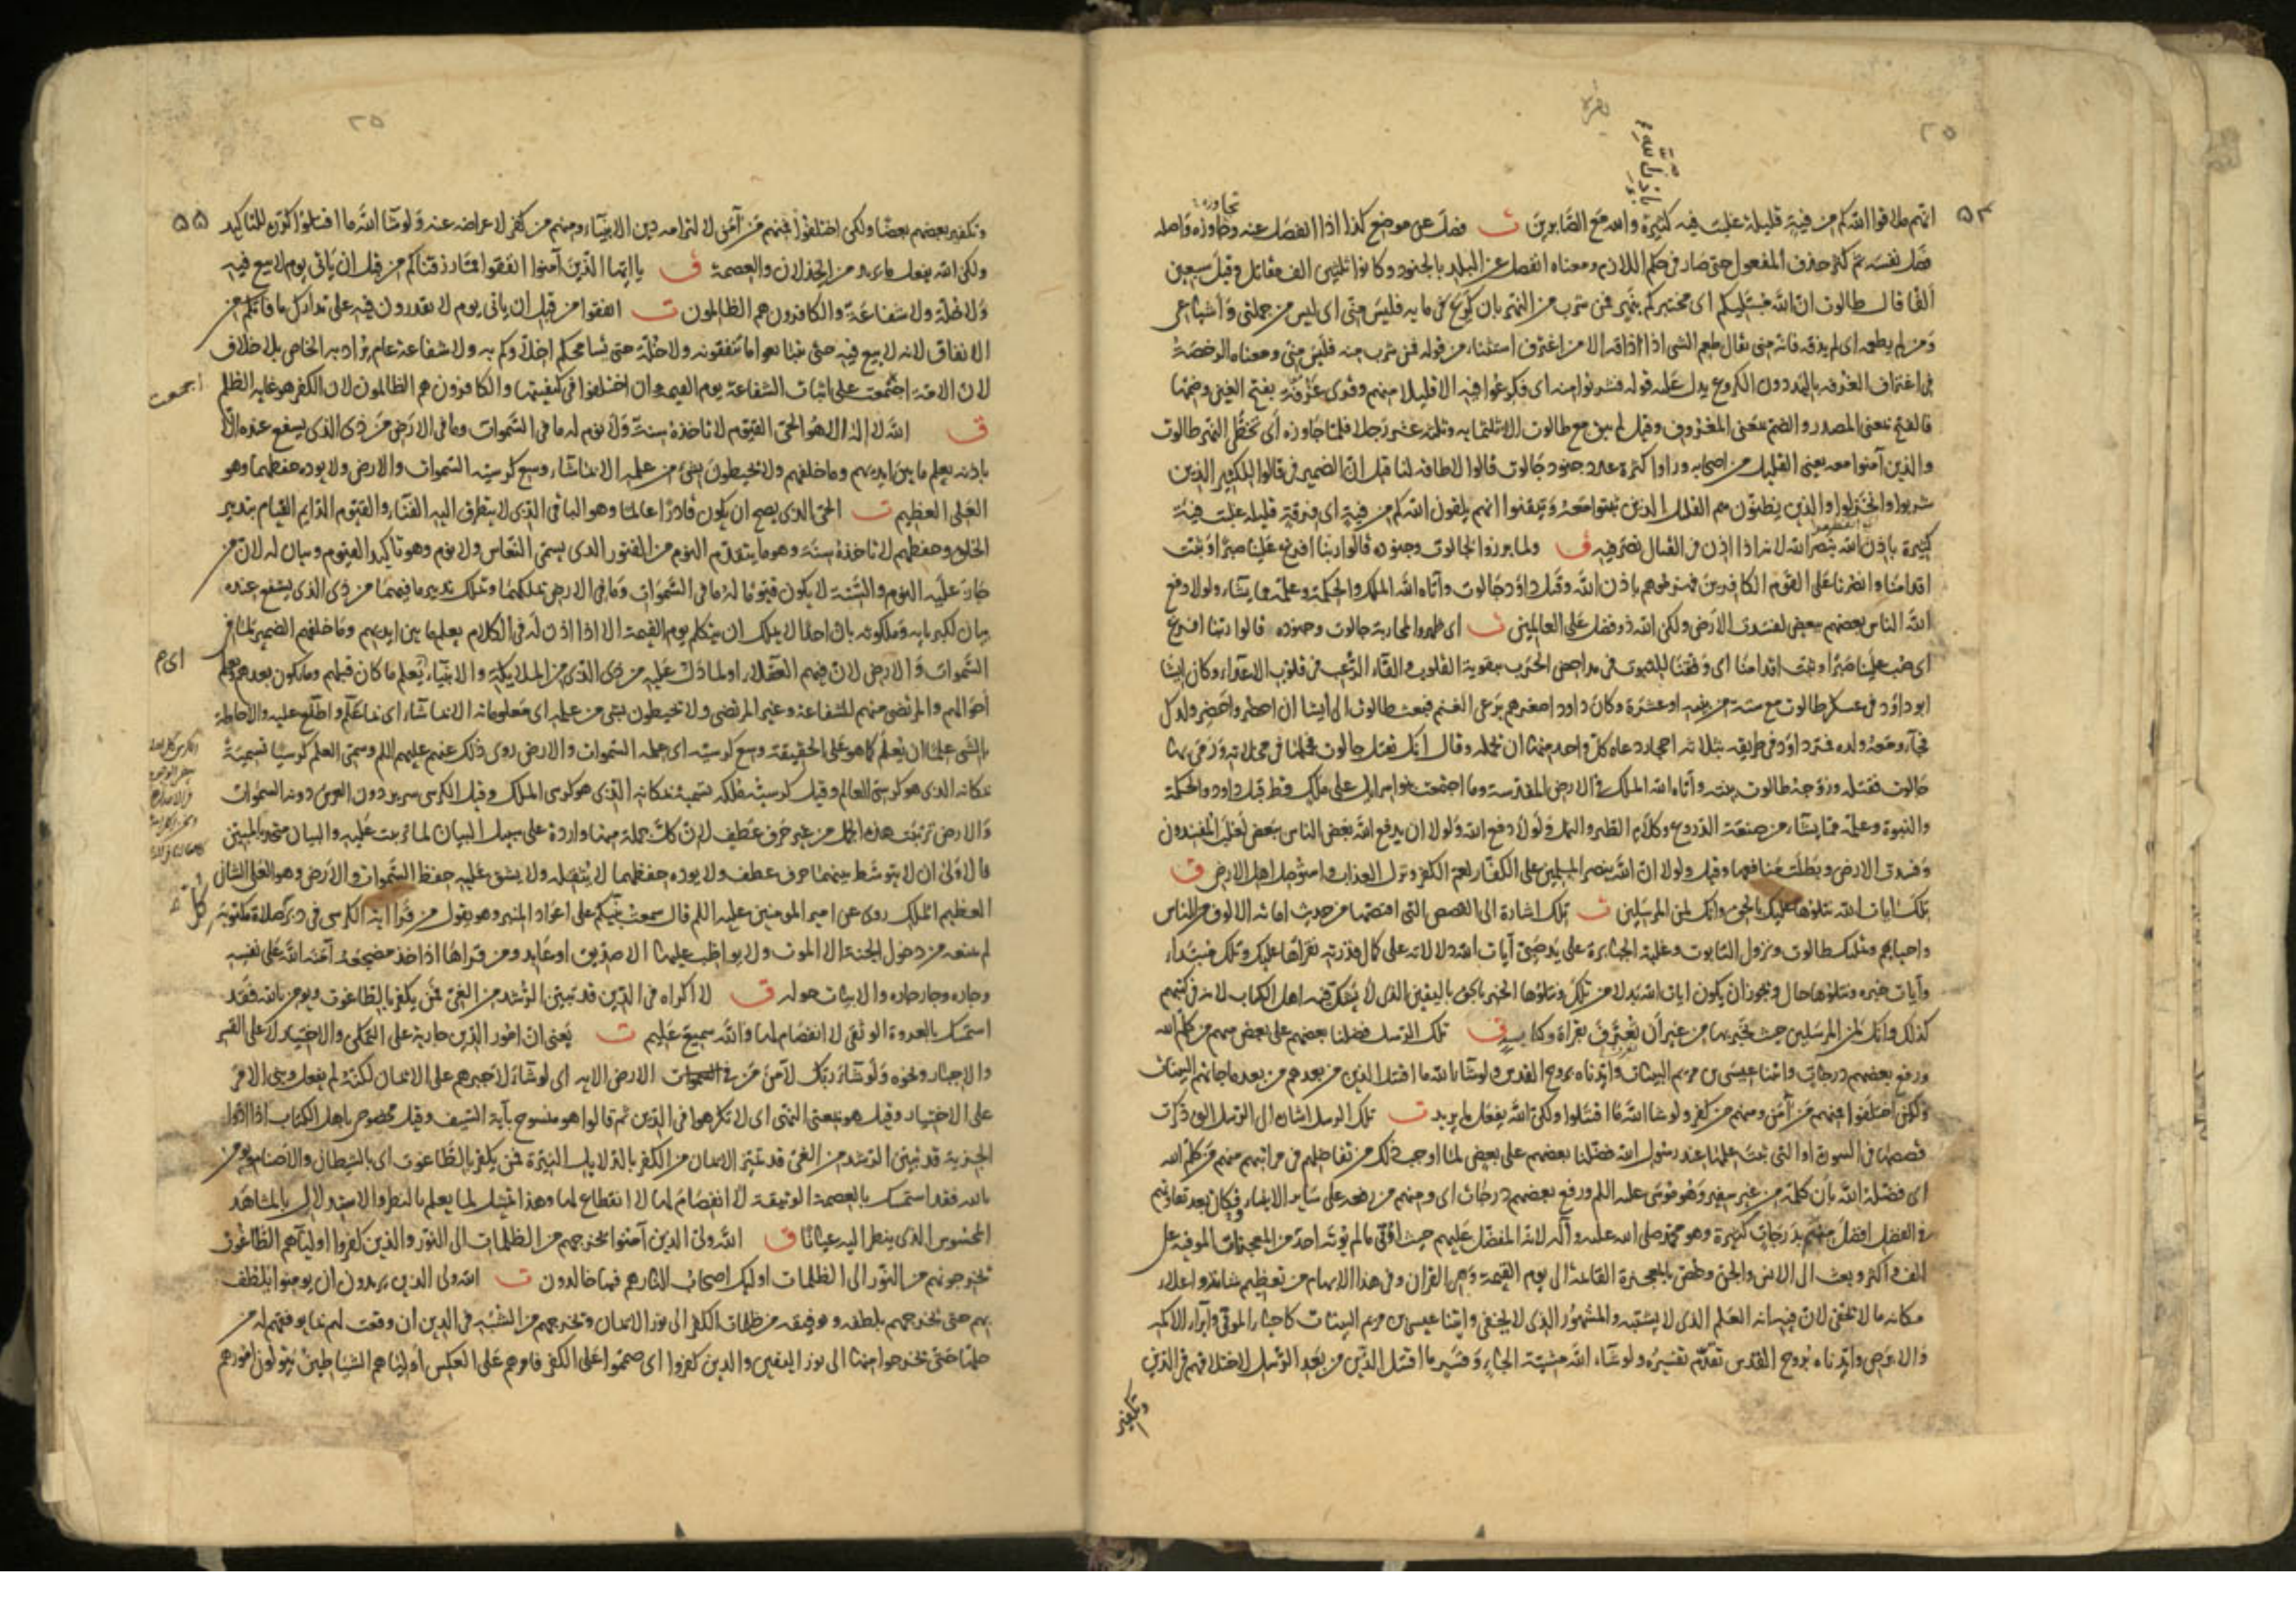 بقرة
بِإِذْنِ اللهِ
٢٥
٥٤
تجاوزه
انهم ملاقوا الله كم من فية قليلة غلبت فية كثيرة والله مع الصابرين ت فصل عن موضع كذا اذا انفصل عنه وجاوزه واصله
فصل نفسه ثم كثر حذف المفعول حتى صار في حكم اللازم ومعناه انفصل عن البلد بالجنود وكانوا ثلثين الف مقاتل وقيل سبعين
الفا قال طالوت ان الله مبتليكم اى مختبركم بنهر فمن شرب من النهر بان كرع في مايه فليس منى اى ليس من جملتى واشياعى
ومن لم يطعمه اى لم يذقه فانه منى يقال طعم الشى اذا ذاقه الا من اغترف استثناء من قوله فمن شرب منه فليس منى ومعناه الرخصة
في اغتراف الغرفة باليد دون الكروع يدل عليه قوله فشربوا منه اى فكرعوا فيه الا قليلا منهم وقرى غرفة بفتح الغين وضمها
فالفتح بمعنى المصدر والضم بمعنى المغروف وقيل لم يبق مع طالوت الا ثلثمايه وثلثة عشر رجلا فلما جاوزه اى تخطى النهر طالوت
والذين آمنوا معه يعنى القليل من اصحابه وراوا كثرة عدد جنود جالوت قالوا لا طاقة لنا قيل ان الضمير في قالوا للكثير الذين
شربوا وانخزلوا والذين يظنون هم القليل الذين ثبتوا معه وتيقنوا انهم يلقون الله كم من فية اى فرقة قليلة غلبت فية
كثيرة باذن الله بنصر الله لانه اذا اذن في القتال نصر فيه ق ولما برزوا لجالوت وجنوده قالوا ربنا افرغ علينا صبرا وثبت
اقدامنا وانصرنا على القوم الكافرين فهزموهم باذن الله وقتل داود جالوت وآتاه الله الملك والحكمة وعلمه مما يشاء ولولا دفع
الله الناس بعضهم ببعض لفسدت الارض ولكن الله ذو فضل على العالمين ت اى ظهروا لمحاربة جالوت وجنوده قالوا ربنا افرغ
اى صب علينا صبرا وثبت اقدامنا اى وفقنا للثبوت في مداحض الحرب بتقوية القلوب والقاء الرعب في قلوب الاعداء وكان ايشا
ابو داود في عسكر طالوت مع ستة من بنيه او عشرة وكان داود اصغرهم يرعى الغنم فبعث طالوت الى ايشا ان احضر واحضر ولدك
فجاء ومعه ولده فمر داود في طريقه بثلاثة احجار دعاه كل واحد منها ان تحمله وقال انك تقتل جالوت فحملها في مخلاته ورمى بها
جالوت فقتله وزوجه طالوت بنته وآتاه الله الملك في الارض المقدسة وما اجتمعت بنو اسرايل على ملك قط قبل داود والحكمة
والنبوة وعلمه مما يشاء من صنعة الدروع وكلام الطير والنمل ولولا دفع الله ولولا ان يدفع الله بعض الناس ببعض لغلب المفسدون
وفسدت الارض وبطلت منافعها وقيل ولولا ان الله ينصر المسلمين على الكفار لعم الكفر ونزل العذاب واستوصل اهل الارض ق
تلك ايات الله نتلوها عليك بالحق وانك لمن المرسلين ت تلك اشارة الى القصص التى اقتصها من حديث اماتة الالوف من الناس
واحيايهم وتمليك طالوت ونزول التابوت وغلبة الجبابرة على يد صبى آيات الله دلالاته على كمال قدرته نقراها عليك وتلك مبتداء
وآيات خبره ونتلوها حال ويجوز ان يكون ايات الله بدلا من تلك ونتلوها الخبر بالحق باليقين الذى لا يشك فيه اهل الكتاب لانه في كتبهم
كذلك وانك لمن المرسلين حيث تخبر بها من غير ان تعرف بقراة وكتابة ق تلك الرسل فضلنا بعضهم على بعض منهم من كلم الله
ورفع بعضهم درجات واتينا عيسى بن مريم البينات وايدناه بروح القدس ولو شاء الله ما اقتتل الذين من بعدهم من بعد ما جاءتهم البينات
ولكن اختلفوا فمنهم من آمن ومنهم من كفر ولو شا الله ما اقتتلوا ولكن الله يفعل ما يريد ت تلك الرسل اشارة الى الرسل التى ذكرت
قصصها في السورة او التى ثبت علمها عند رسول الله فضلنا بعضهم على بعض لما اوجب ذلك من تفاضلهم في مراتبهم منهم من كلم الله
اى فضله الله بان كلمه من غير سفير وهو موسى عليه السلم ورفع بعضهم درجات اى ومنهم من رفعه على ساير الانبياء فكان بعد تفاوتهم
في الفضل افضل منهم بدرجات كثيرة وهو محمد صلى الله عليه وآله لانه المفضل عليهم حيث اوتى ما لم يوته احد من المعجزات الموفية على
الف واكثر وبعث الى الانس والجن وخص بالمعجزة القائمة الى يوم القيمة وهى القران وفى هذا الابهام من تعظيم شانه واعلاء
مكانه ما لا يخفى لان فيه انه العلم الذى لا يشتبه والمشهور الذى لا يخفى واتينا عيسى بن مريم البينات كاحياء الموتى وابراء الاكمه
والابرص وايدناه بروح القدس تقدم تفسيره ولو شاء الله مشية الجاء وقسر ما اقتتل الذين من بعد الرسل لاختلافهم في الدين
وتكفير
٢٥
٥٥
وتكفير بعضهم بعضا ولكن اختلفوا فمنهم من آمن لالتزامه دين الانبياء ومنهم من كفر لاعراضه عنه ولو شاء الله ما اقتتلوا كرره للتاكيد
ولكن الله يفعل ما يريد من الخذلان والعصمة ق يا ايها الذين آمنوا انفقوا مما رزقناكم من قبل ان ياتى يوم لا بيع فيه
ولا خلة ولا شفاعة والكافرون هم الظالمون ت انفقوا من قبل ان ياتى يوم لا تقدرون فيه على تدارك ما فاتكم من
الانفاق لانه لا بيع فيه حتى تبتاعوا ما تنفقونه ولا خلة حتى يسامحكم اخلاوكم به ولا شفاعة عام يراد به الخاص بلا خلاف
لان الامة اجتمعت على اثبات الشفاعة يوم القيمة وان اختلفوا في كيفيتها والكافرون هم الظالمون لان الكفر هو غاية الظلم
اجمعت
ق الله لا اله الا هو الحى القيوم لا تاخذه سنة ولا نوم له ما في السموات وما في الارض من ذى الذى يشفع عنده الا
باذنه يعلم ما بين ايديهم وما خلفهم ولا يحيطون بشى من علمه الا بما شاء وسع كرسيه السموات والارض ولا يوده حفظهما وهو
العلى العظيم ت الحى الذى يصح ان يكون قادرا عالما وهو الباقى الذى لا يتطرق اليه الفناء والقيوم الدايم القيام بتدبير
الخلق وحفظهم لا تاخذه سنة وهو ما يتقدم النوم من الفتور الذى يسمى النعاس ولا نوم وهو تاكيد القيوم وبيان له لان من
جاز عليه النوم والسنة لا يكون قيوما له ما في السموات وما في الارض يملكهما ويملك تدبير ما فيهما من ذى الذى يشفع عنده
بيان لكبريايه وملكوته بان احدا لا يملك ان يتكلم يوم القيمة الا اذا اذن له في الكلام يعلم ما بين ايديهم وما خلفهم الضمير لما في
السموات والارض لان فيهم العقلاء او لما دل عليه من ذى الذى من الملايكة والانبياء يعلم ما كان قبلهم وما يكون بعدهم يعلم
اى م
احوالهم والمرتضى منهم للشفاعة وغير المرتضى ولا يحيطون بشى من علمه اى معلوماته الا بما شاء اى بما علم واطلع عليه والاحاطة
بالشى علما ان يعلم كما هو على الحقيقة وسع كرسيه اى علمه السموات والارض روى ذلك عنهم عليهم السلم وسمى العلم كرسيا تسمية
بمكانه الذى هو كرسى العالم وقيل كرسيه ملكه تسمية بمكانه الذى هو كرسى الملك وقيل الكرسى سرير دون العرش دونه السموات
والارض ترتبت هذه الجمل من غير حرف عطف لان كل جملة منها واردة على سبيل البيان لما ترتبت عليه والبيان متحد بالمبين
فالاولى ان لا يتوسط بينهما حرف عطف ولا يوده حفظهما لا يثقله ولا يشق عليه حفظ السموات والارض وهو العلى الشان
العظيم الملك روى عن امير المومنين عليه السلم قال سمعت نبيكم على اعواد المنبر وهو يقول من قرا اية الكرسى في دبر صلاة مكتوبة
كل
لم يمنعه من دخول الجنة الا الموت ولا يواظب عليها الا صديق او عابد ومن قراها اذا اخذ مضجعه آمنه الله على نفسه
وجاره وجار جاره والابيات حوله ق لا اكراه في الدين قد تبين الرشد من الغى فمن يكفر بالطاغوت ويومن بالله فقد
استمسك بالعروة الوثقى لا انفصام لها والله سميع عليم ت يعنى ان امور الدين جارية على التمكن والاختيار لا على القسر
والاجبار ونحوه ولو شاء ربك لآمن من في السموات الارض الايه اى لو شاء لاجبرهم على الايمان لكنه لم يفعل وبنى الامر
على الاختيار وقيل هو بمعنى النهى اى لا تكرهوا في الدين ثم قالوا هو منسوخ بآية السيف وقيل مخصوص باهل الكتاب اذا ادوا
الجزية قد تبين الرشد من الغى قد تميز الايمان من الكفر بالدلايل النيرة فمن يكفر بالطاغوت اى بالشيطان والاصنام ويومن
بالله فقد استمسك بالعصمة الوثيقة لا انفصام لها لا انقطاع لها وهذا تمثيل لما يعلم بالنظر والاستدلال بالمشاهد
المحسوس الذى ينظر اليه عيانا ق الله ولى الذين آمنوا يخرجهم من الظلمات الى النور والذين كفروا اولياهم الطاغوت
يخرجونهم من النور الى الظلمات اوليك اصحاب النار هم فيها خالدون ت الله ولى الذين يريدون ان يومنوا يلطف
بهم حتى يخرجهم بلطفه وتوفيقه من ظلمات الكفر الى نور الايمان ويخرجهم من الشبه في الدين ان وقعت لهم بما يوفقهم له من
حلها حتى يخرجوا منها الى نور اليقين والذين كفروا اى صمموا على الكفر فامرهم على العكس اولياهم الشياطين يتولون امورهم